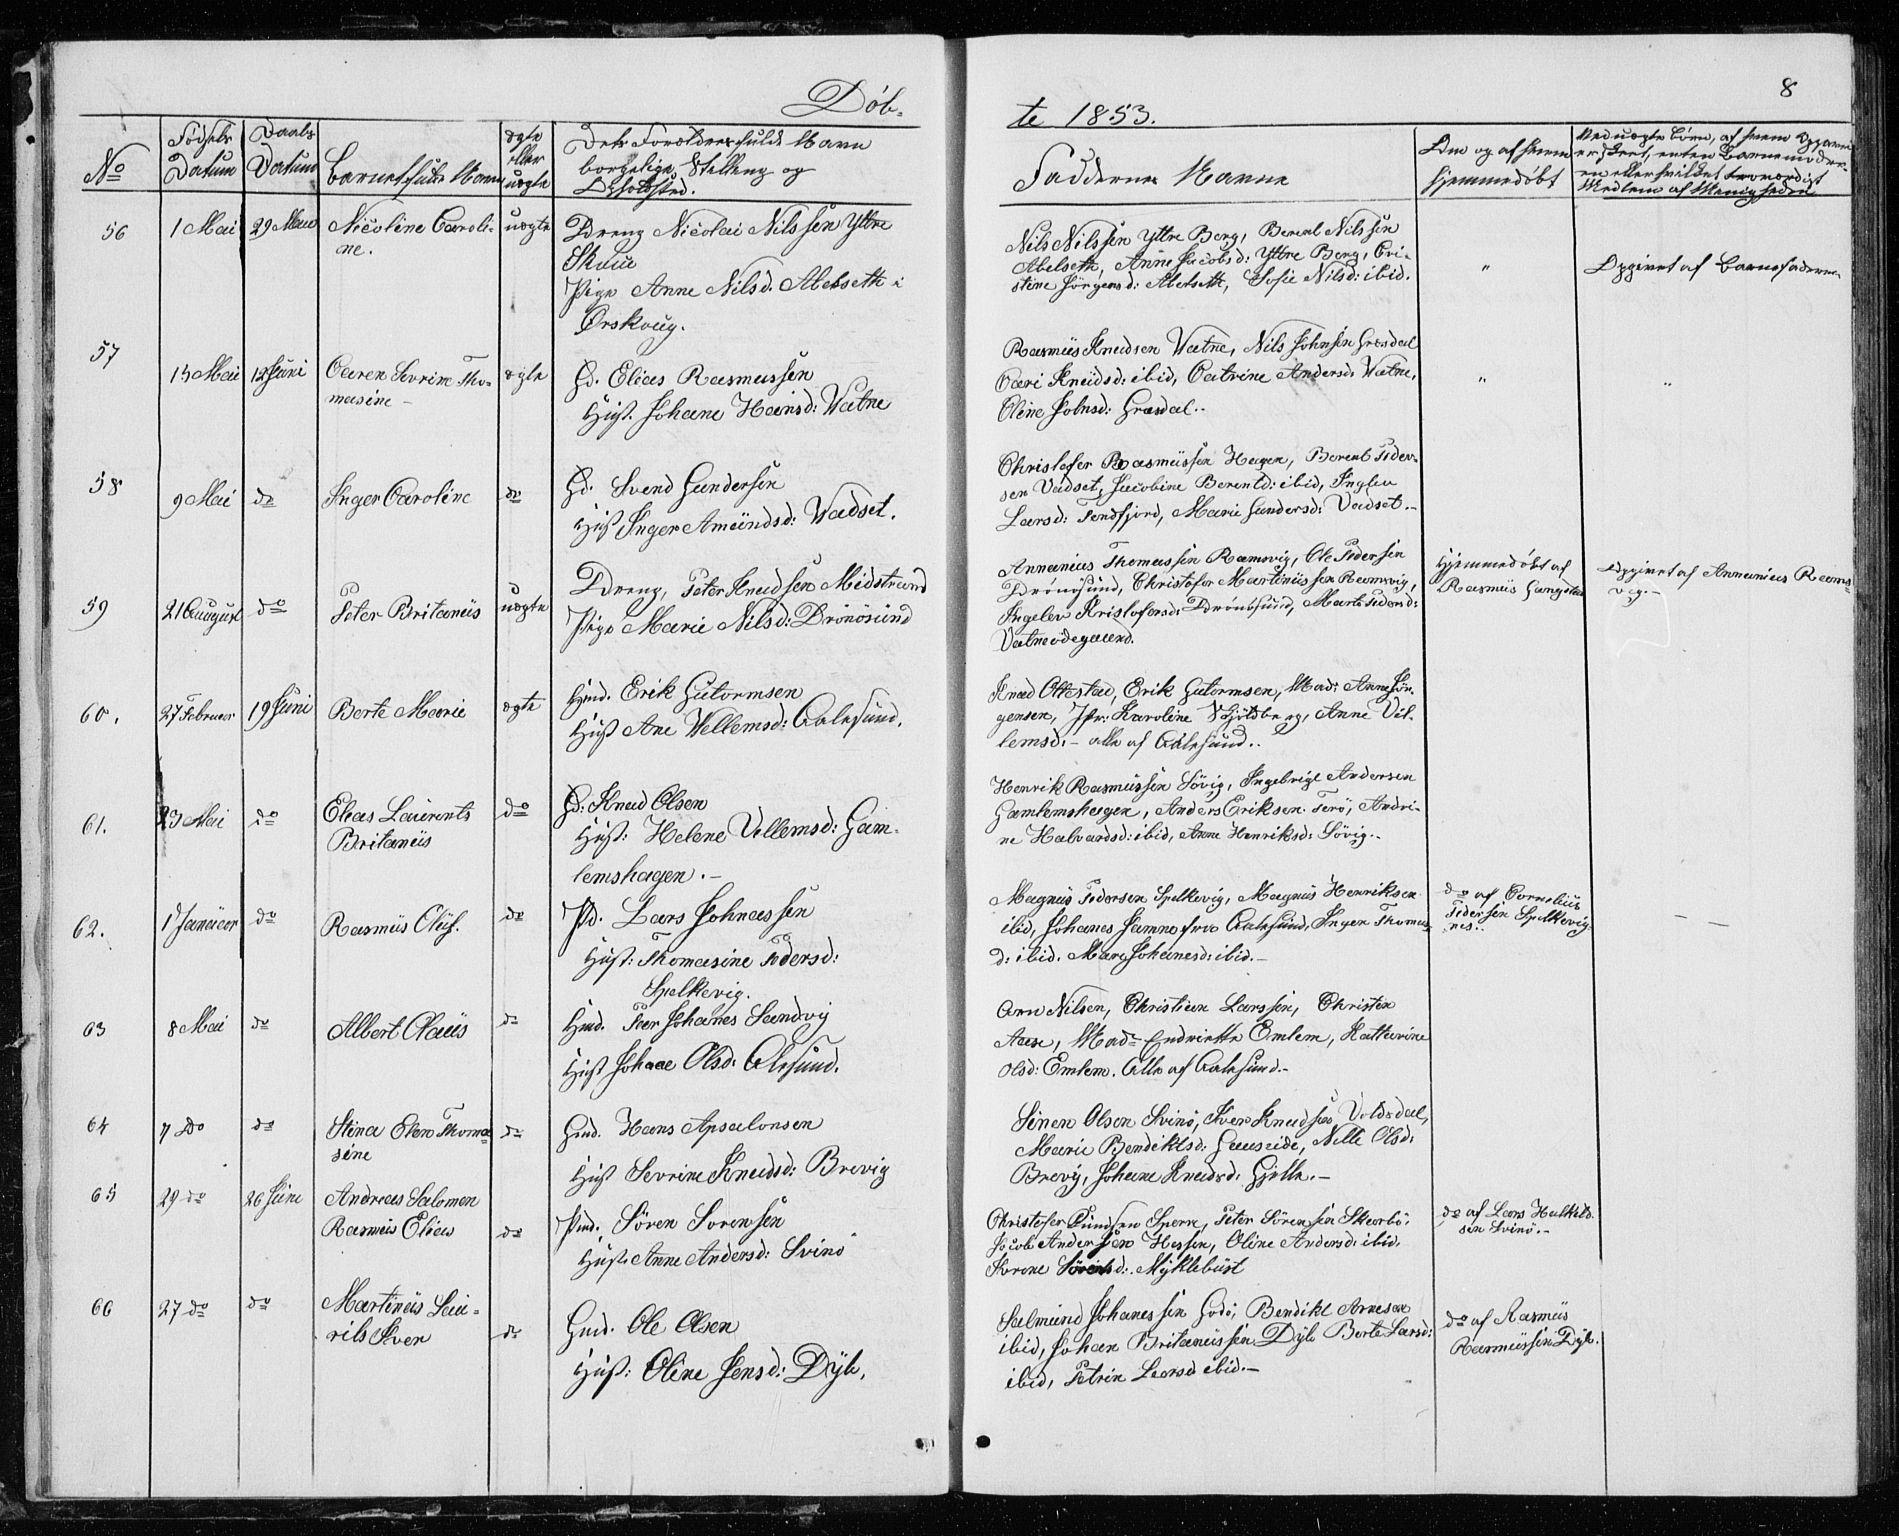 Døb-
te 1853.
8
No
Fødsels Datum
Daabs Datum
Barnets fulde Navn
ægte eller uægte
Dets Forældres fulde Navn
borgelige Stilling og
Opholdsted.
Faddernes Navne
Om og af hvem
hjemmedøbt
Ved uægte Børn, af hvem Opgaven
er skeet, enten Barnemoder-
en eller hvilket troværdigt
Medlem af Menigheden
56 1 Mai 29 Mai Nicoline Caroli- uægte Dreng Nicolai Nilssen Yttre
ne. Skoue
Pige Anne Nilsd. Abelseth i
Ørskoug.
Nils Nilssen Yttre Berg, Berent Nilssen
Abelseth, Anne Jacobsd: Yttre Berg, Cri-
stine Jørgensd: Abelseth, Sofie Nilsd: ibid.
" Opgivet af Barnefaderen
57 15 Mai 12 Juni Caren Sevrine Tho- ægte Gd. Elias Rasmussen
masine – Hust. Johane Hansd: Watne
Rasmus Knudsen Watne, Nils Johnsen Græsdal
Cari Knudsd: ibid, Catrine Andersd: Watne,
Oline Johnsd: Græsdal..
" "
58 9 Mai do Inger Caroline do Gd. Svend Gundersen
Hust Inger Amundsd: Wadset.
Christofer Rasmussen Hagen, Berent Peder-
sen Vadset, Jacobine Berentd: ibid, Inglev
Larsd: Tendfjord, Marie Gundersd: Vadset.–
59 21 August do Peter Britanus uægte Dreng, Peter Knudsen Midstrand
Pige Marie Nilsd: Drönösund
Annanias Thomassen Ramsvig, Ole Pedersen
Drönösund, Christofer Martinussen Ramsvig,
Ingelev Kristofersd: Drönösund, Marte Pedersd:
Vatneødegaard.
Hjemmedøbt af
Rasmus Gangstad
Opgivet af Annanias Rams-
vig.–
60. 27 Februar 19 Juni Berte Marie ægte Hmd. Erik Gutormsen
Hust Ane Wellemsd: Aalesund.
Knud Ottestad, Erik Gutormsen, Mad: Anne Jør-
gensen, Jfr: Karoline Skjöldberg, Anne Vil-
lemsd.– alle af Aalesund..
61. 23 Mai do Elias Laurents do Gd: Knud Olsen
Britanus Hust: Helene Vellemsd: Gam-
lemshagen.–
Henrik Rasmussen Søvig, Ingebrigt Andersen
Gamlemshagen, Anders Eriksen Terö, Andri-
ne Halvardsd: ibid, Anne Henriksd: Søvig..
62. 1 Januar do Rasmus Oluf. do Pd. Lars Johnassen
Hust: Thomasine Pedersd:
Spelkevig.
Magnus Pedersen Spelkevig, Magnus Henriksen
ibid, Johanes Samne fra Aalesund, Inger Thomas-
d: ibid. Mari Johanesd: ibid.–
do af Cornelius
Pedersen Spelkevig-
nes..
– –
63 8 Mai do Albert Claus do Hmd. Peer Johanes Sandvig
Hust Johane Olsd: Alesund.
Arn Nilsen, Christian Larssen, Christen
Aase, Mad: Endriette Emlem, Kattarine
Olsd: Emlem. Alle af Aalesund.–
64 7 Do do Stina Elen Thoma- do Gmd. Hans Apsalonsen
sine Hust Sevrine Knudsd: Brevig
Simen Olsen Svinö, Iver Knudsen Voldsdal,
Marie Bendiktsd: Gaaseide, Nille Olsd:
Brevig, Johane Knudsd: Gjelle.–
65 29 do 26 Juni Andreas Salomon
Rasmus Elias do Pmd. Sören Sörensen
Hust. Anne Andersd: Svinö
Christofer Knudsen Sperre, Peter Sörensen Skarbö,
Jacob Andersen Hessen, Oline Andersd: ibid.
Korene Sörensd: Myklebust
do af Lars Halkild-
sen Svinö.–
66 27 do do Martinus Lau-
rits Iver do Gmd. Ole Olsen
Hust: Oline Jensd: Dyb.
Salmund Johanessen Godö, Bendikt Arnesen
ibid, Johan Britanussen Dyb Berte Larsd:
ibid, Petrin Larsd ibid.–
do af Rasmus
Rasmussen Dyb.